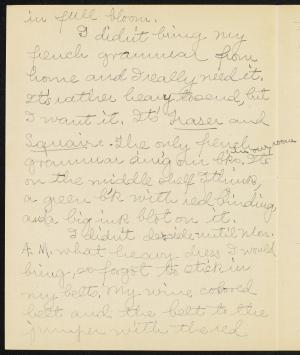 in full bloom.
I didn't bring my
french grammar from
home and I really need it.
It's rather heavy to send, but
I want it. It's Fraser and
Squair. The only french
in our room
grammar among our bks. It's
on the middle shelf I think,
a green bk with red binding,
and a big ink blot on it.
I didn't decide until Mon.
A.M. what heavy dress I would
bring, so forgot to stick in
my belts. My wine colored
belt and the belt to the
jumper with the red